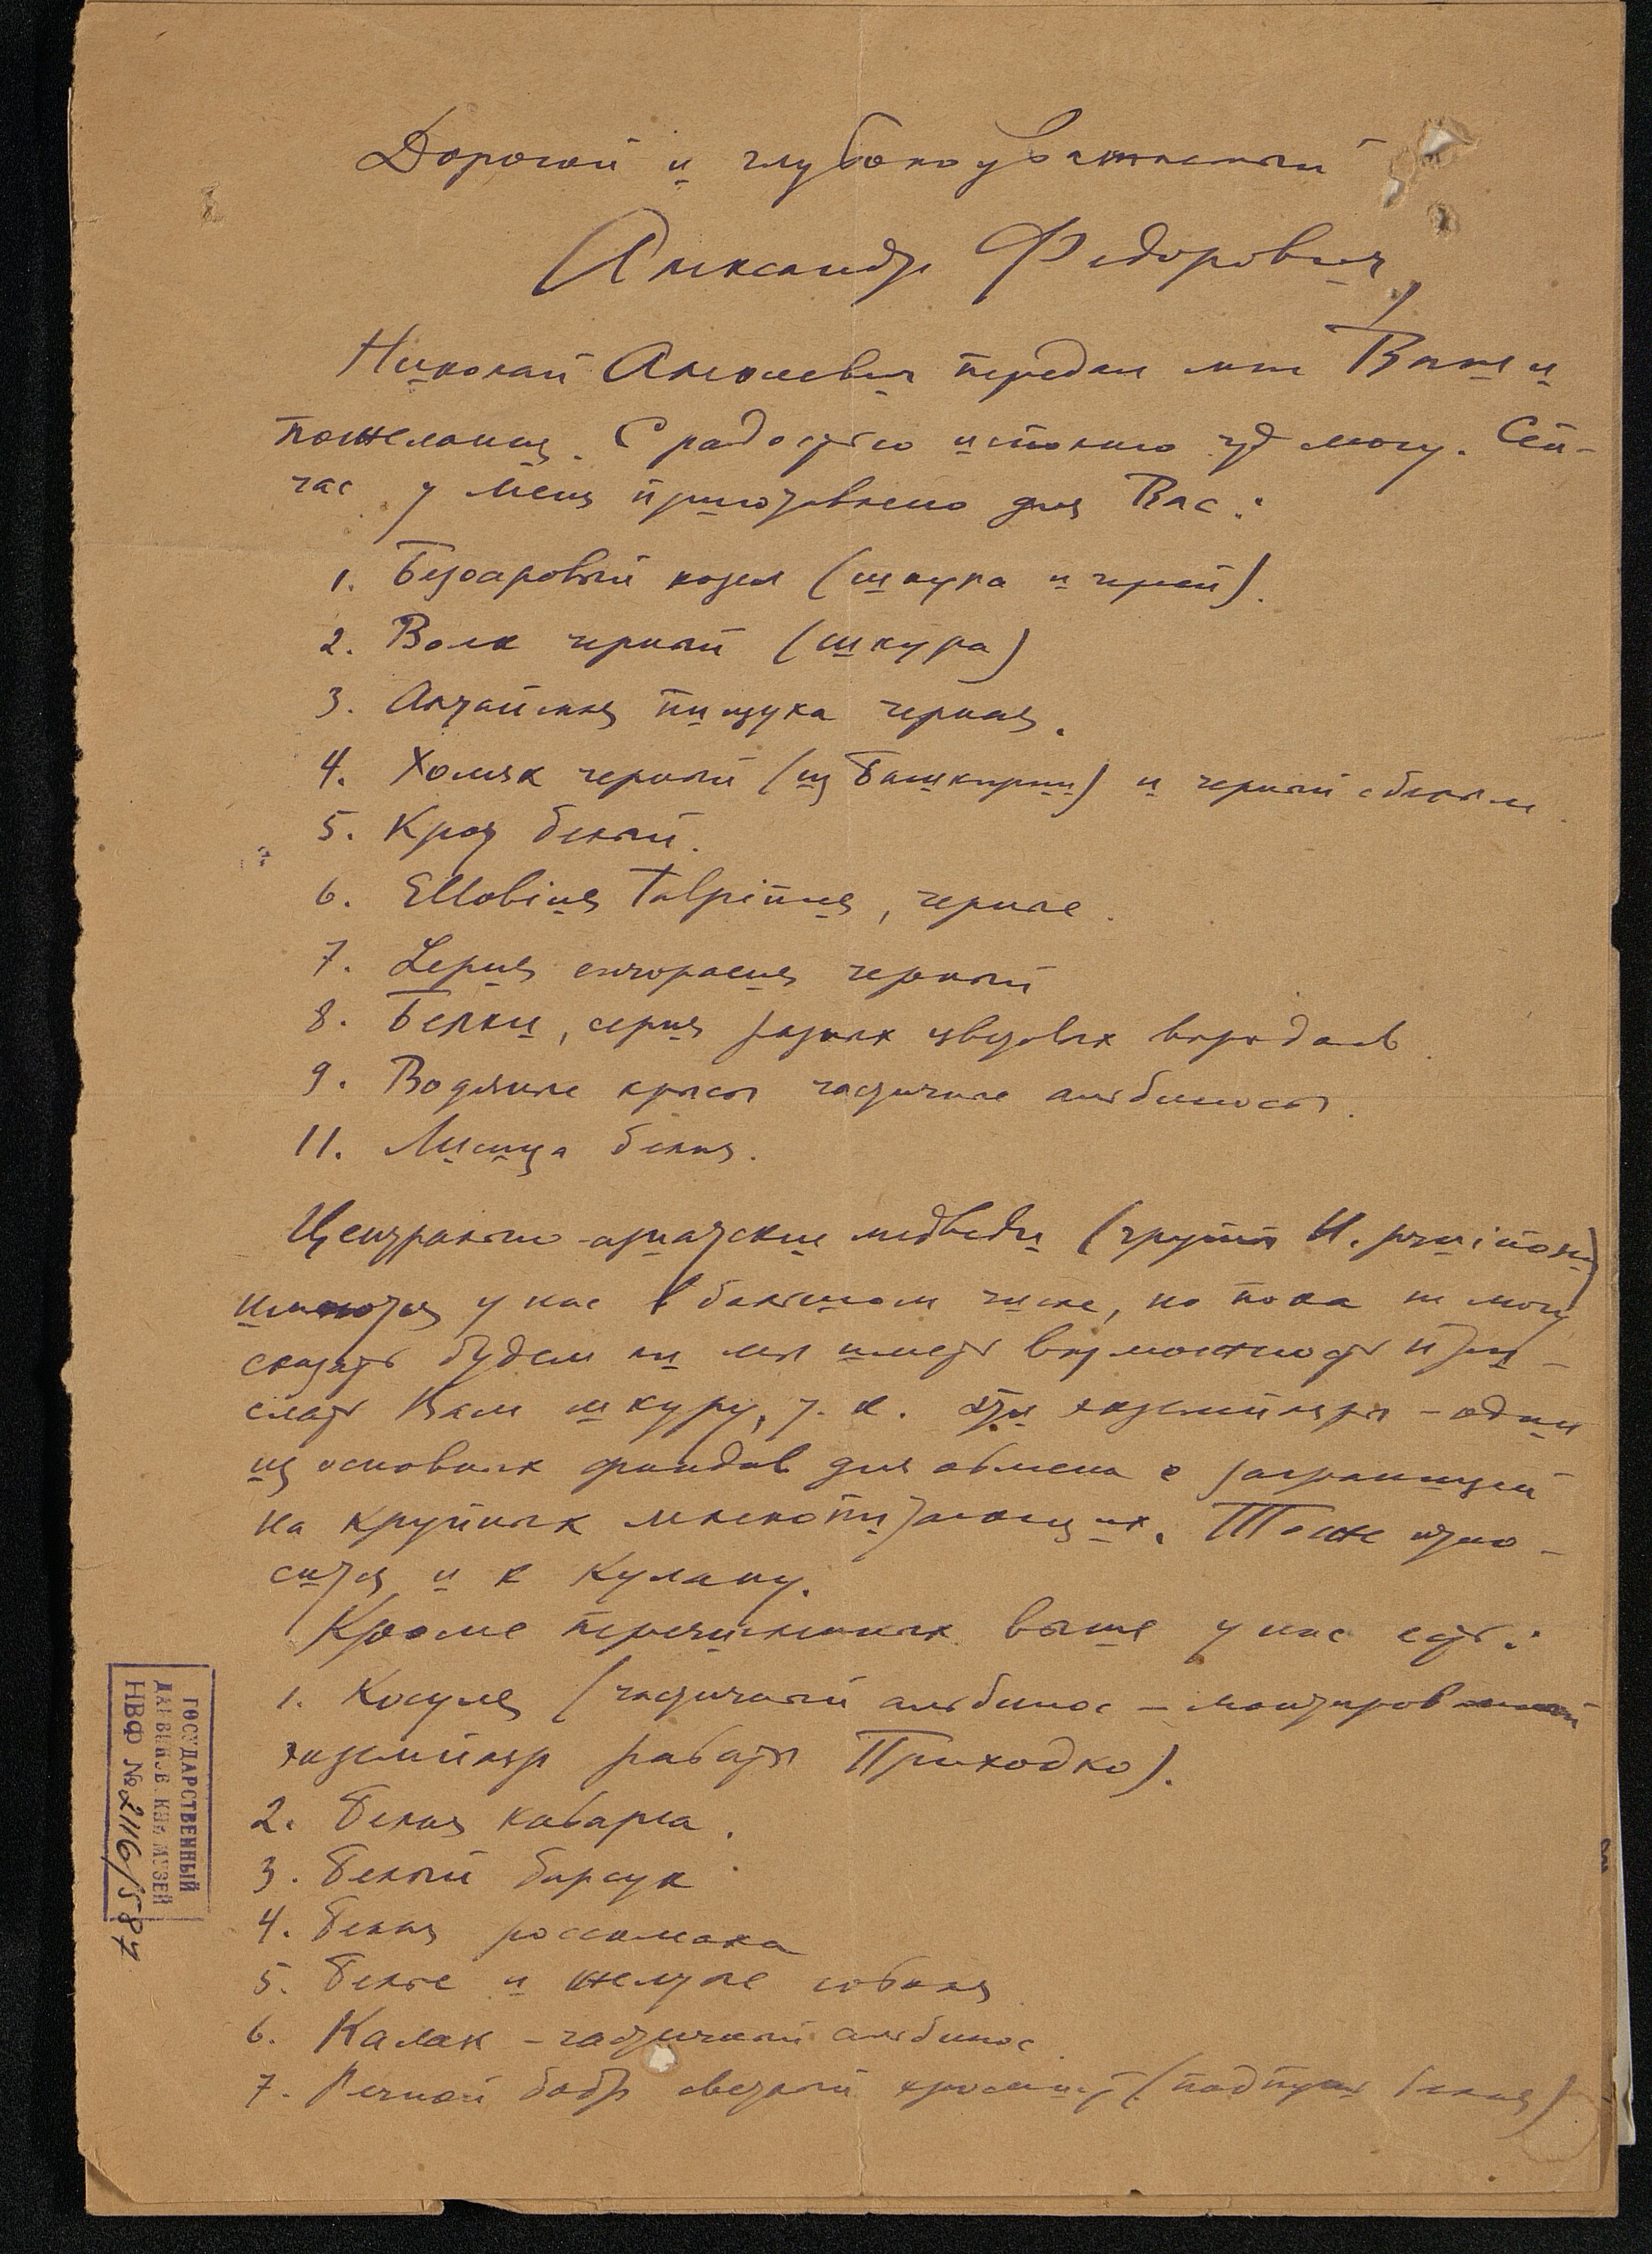 Дорогой и глубокоуважаемый
Александр Федорович,
Николай Алексеевич передал мне Ваши
пожелания. С радостью исполню что могу. Сей-
час у меня приготовлено для Вас:
1. Безоаровый козел (шкура и череп).
2. Волк черный (шкура)
3. Алтайская пищуха черная.
4. Хомяк черный (из Башкирии) и черный с белым
5. Крот белый.
6. Ellobius talpinus, черные.
7. Lepus europaeus черный
8. Белки, серия разных цветовых вариаций.
9. Водяные крысы частичные альбиносы.
11. Лисица белая.
Центрально-азиатские медведи (группы U. pruinosus)
имеются у нас в большом числе, но пока не могу
сказать будем ли мы иметь возможность при-
слать Вам шкуру, т. к. эти экземпляры – один
из основных фондов для обмена с заграницей
на крупных млекопитающих. Тоже отно-
сится и к кулану.
Кроме перечисленных выше у нас есть:
1. Косуля (частичный альбинос – монтированный
экземпляр работы Приходко).
2. Белая кабарга.
3. Белый барсук
4. Белая россомаха
5. Белые и желтые соболя
6. Калан – частичный альбинос
7. Речной бобр светлый (подпушь белая)
ГОСУДАРСТВЕННЫЙ
ДАРВИНОВСКИЙ МУЗЕЙ
НВФ № 2116/587